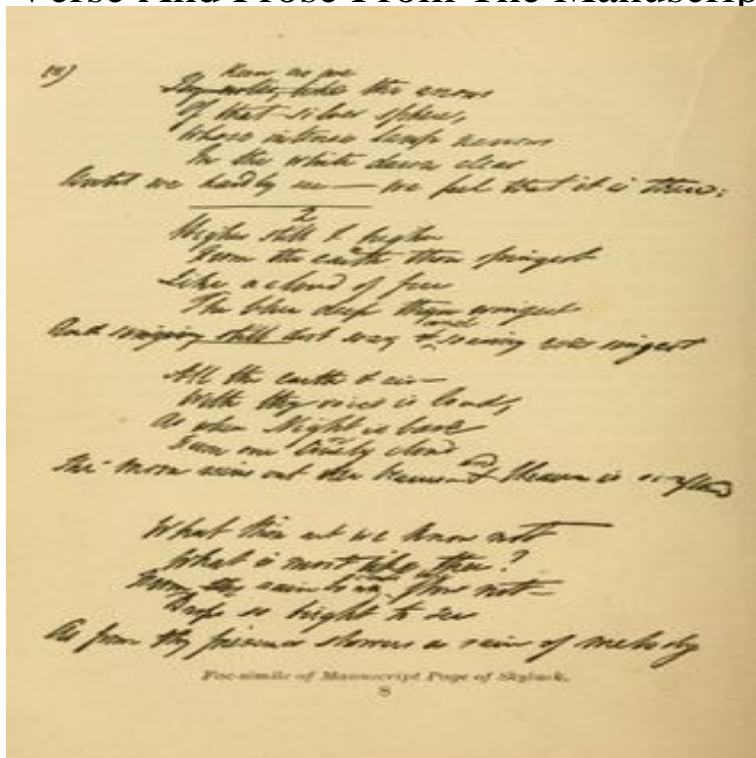 Verse And Prose From The Manuscrip
Keen as are
the arrows
Of that silver sphere,
Whose intense lamp narrows
In the white dawn clear
Until we hardly see — we feel that it is there:
2
Higher still & higher
From the earth thou springest
Like a cloud of fire
The blue deep thou wingest
And singing still dost and soaring ever singest
All the earth & air
With thy voice is loud,
As when Night is bare
From one lonely cloud
The moon rains out her beams and Heaven is overflowed
What thou art we know not
What is most like thee?
From rainbow flow not
Drops so bright to see
As from thy presence showers a rain of melody
Fac-simile of Manuscript Page of Skylark.
8